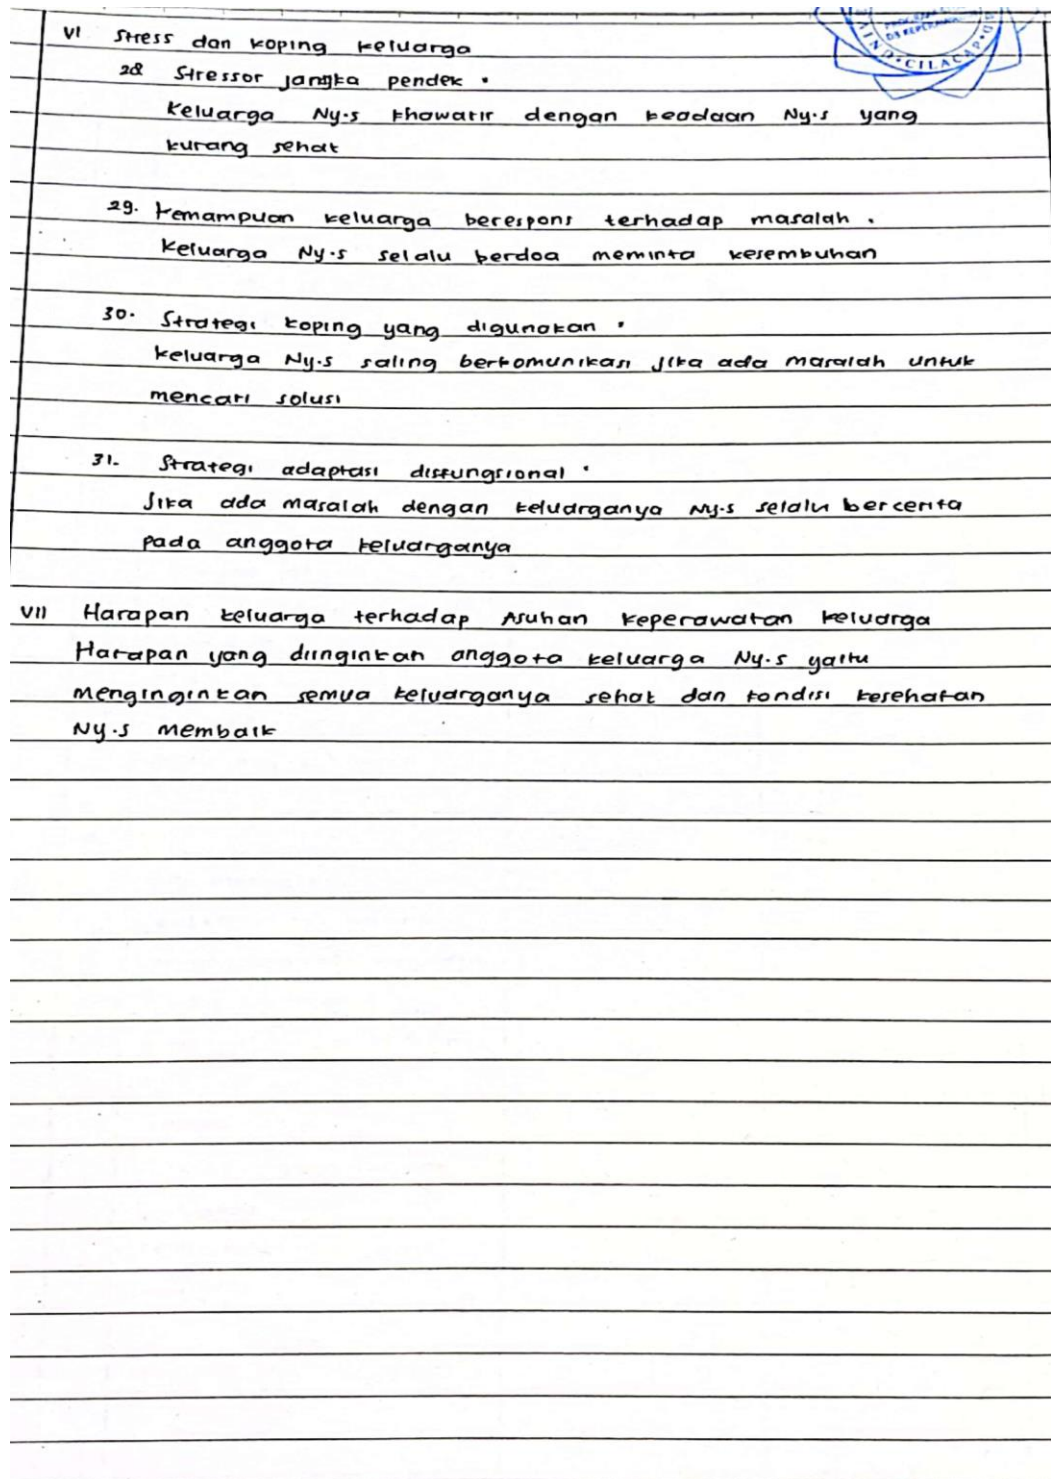 VI Stress dan koping keluarga
28 Stressor jangka pendek .
Keluarga Ny.s khawatir dengan keadaan Ny.s yang
kurang sehat
29. Kemampuan keluarga berespons terhadap masalah .
Keluarga Ny.s selalu berdoa meminta kesembuhan
30. Strategi koping yang digunakan .
Keluarga Ny.s saling berkomunikasi jika ada masalah untuk
mencari solusi
31. Strategi adaptasi disfungsional .
Jika ada masalah dengan keluarganya Ny.s selalu bercerita
pada anggota keluarganya
VII Harapan keluarga terhadap Asuhan keperawatan keluarga
Harapan yang diinginkan anggota keluarga Ny.s yaitu
menginginkan semua keluarganya sehat dan kondisi kesehatan
Ny.s membaik
CILACAP